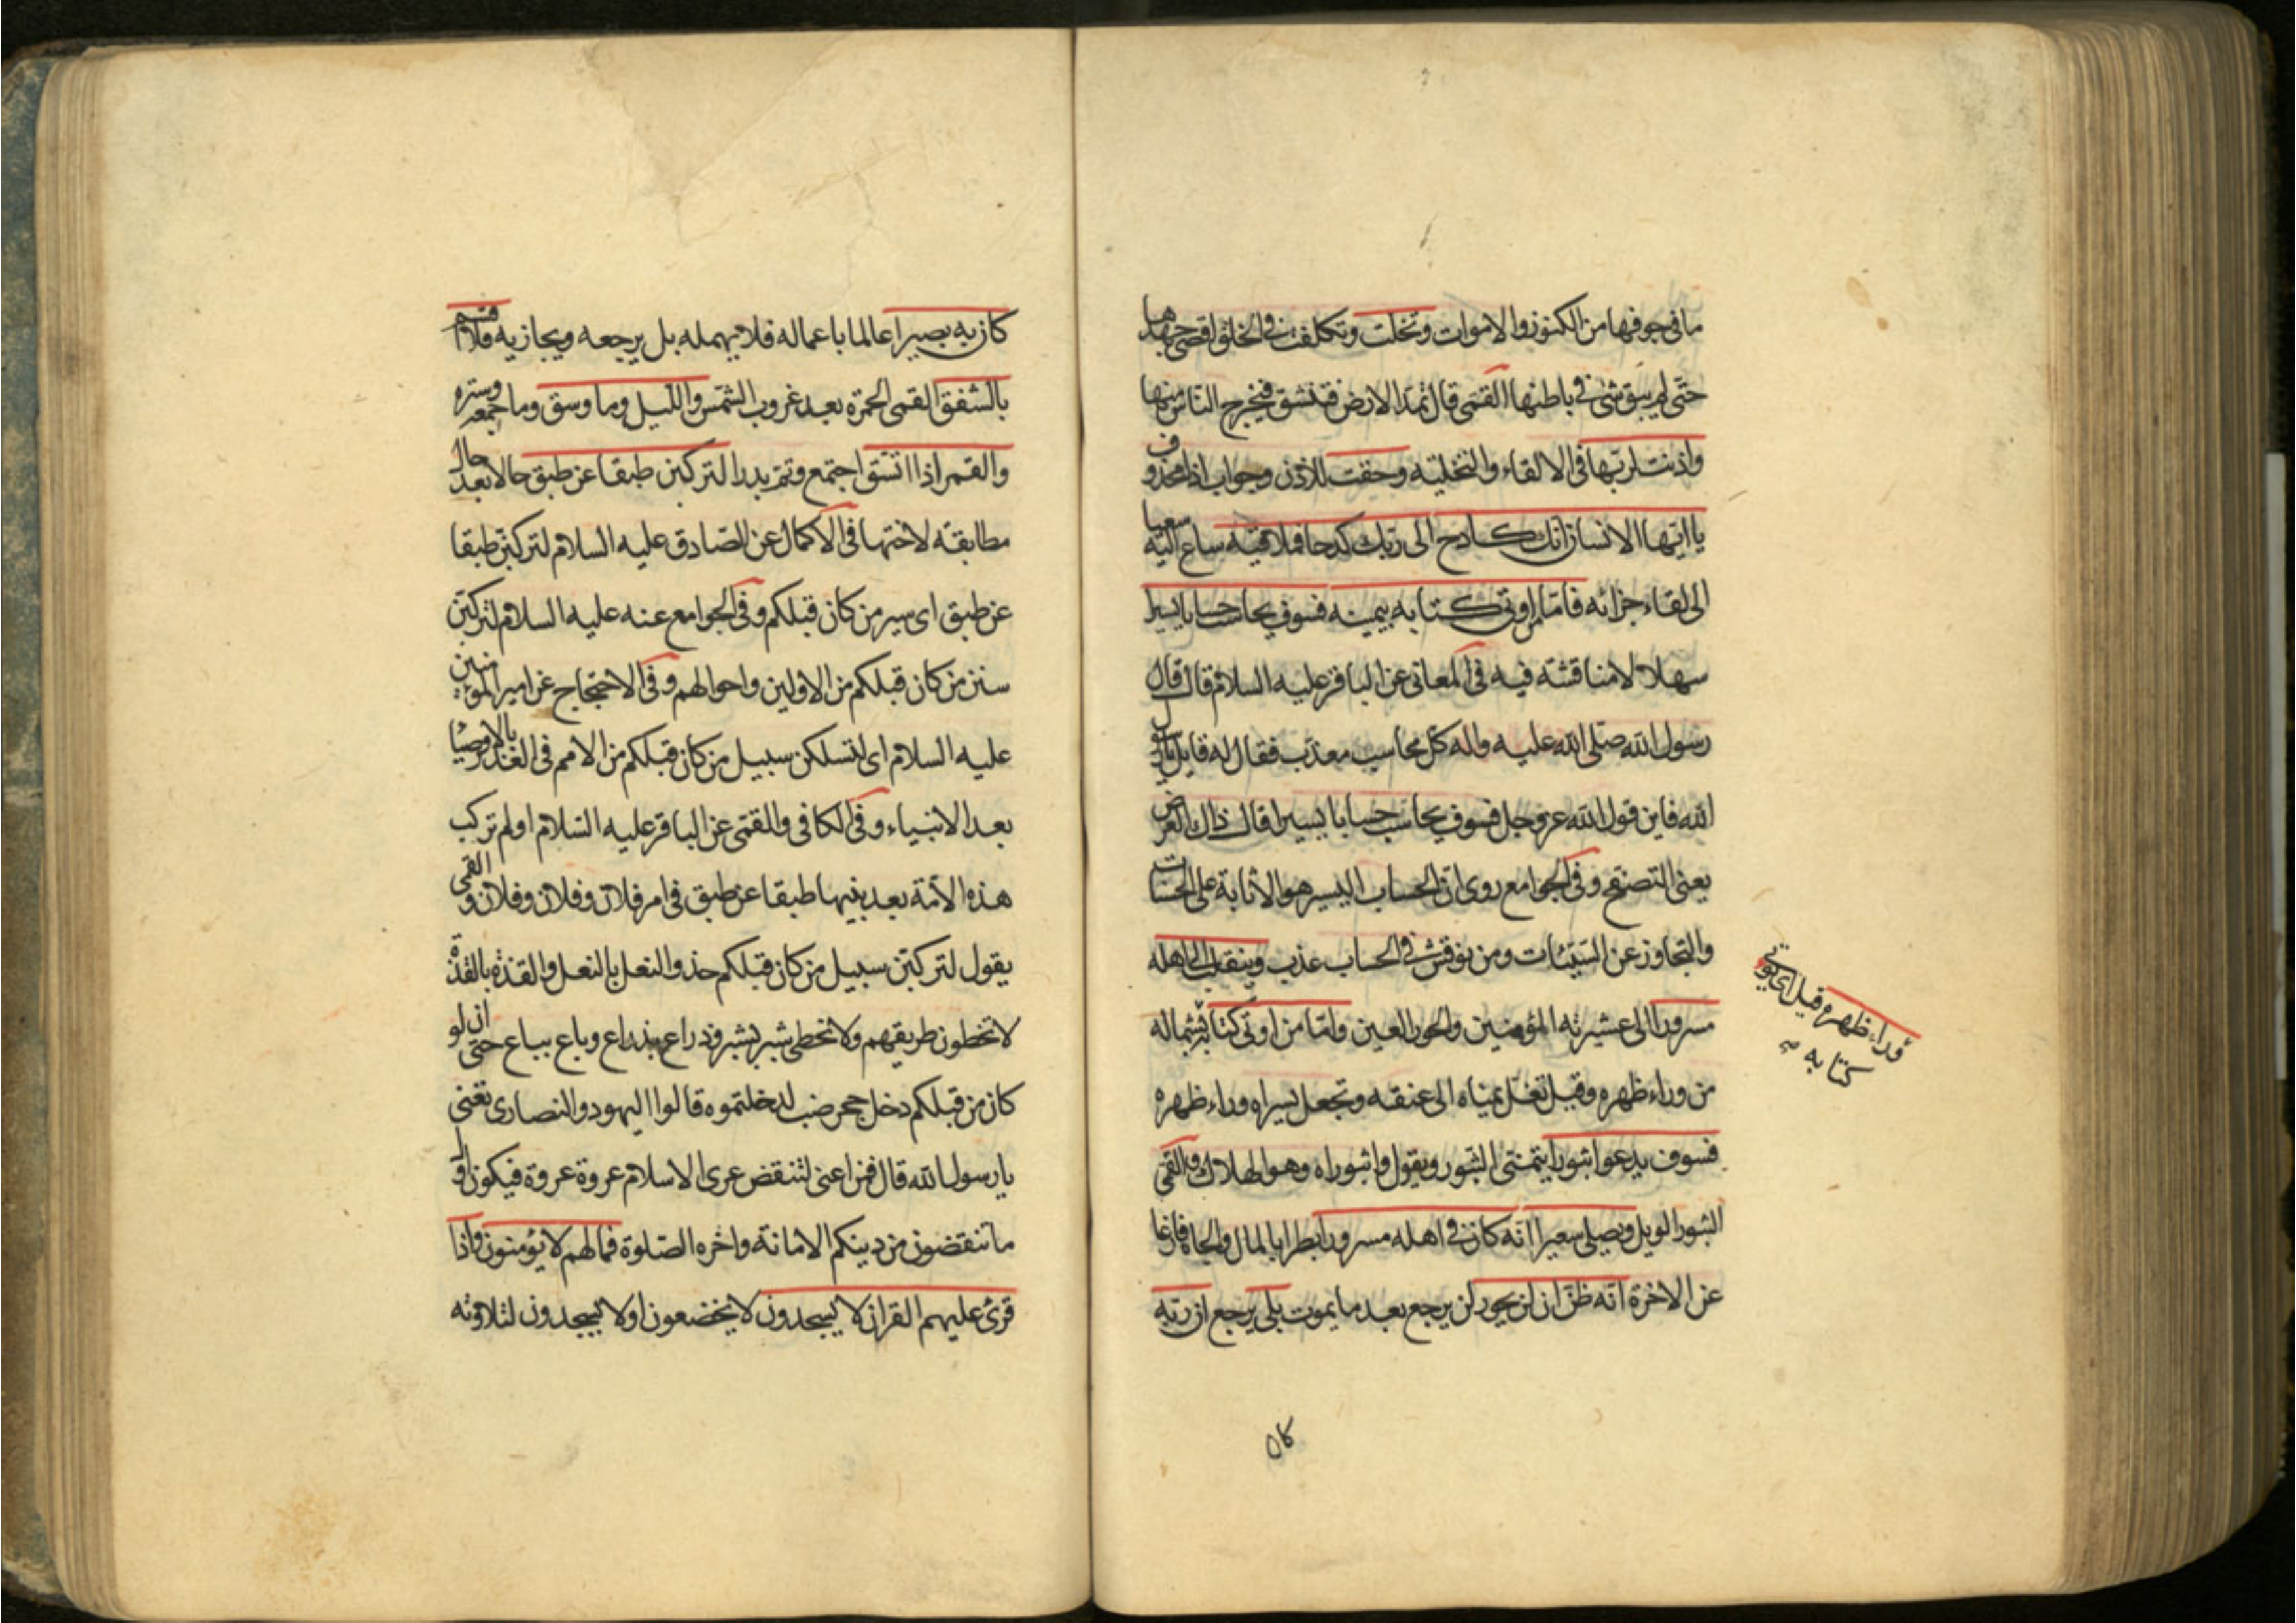 ما فى جوفها من الكنوز والاموات وتخلت وتكلفت فى الخلو اقصى جهدها
حتى لم يبق شئ فى باطنها القمى قال تمد الارض فتنشق فيخرج الناس منها
واذنت لربها فى الالقاء والتخلية وحقت للاذن وجواب اذا محذوف
يا ايها الانسان انك كادح الى ربك كدحا فملاقيه ساع اليه سعيا
الى لقاء جزائه فاما من اوتى كتابه بيمينه فسوف يحاسب حسابا يسيرا
سهلا لا مناقشة فيه فى المعانى عن الباقر عليه السلام قال قال
رسول الله صلى الله عليه واله كل محاسب معذب فقال له قايل يا رسول
الله فاين قول الله عز وجل فسوف يحاسب حسابا يسيرا قال ذاك العرض
يعنى التصفح وفى الجوامع روى ان الحساب اليسير هو الاثابة على الحسنات
والتجاوز عن السيئات ومن نوقش فى الحساب عذب وينقلب الى اهله
مسرورا الى عشيرته المؤمنين والحور العين واما من اوتى كتابه بشماله
من وراء ظهره وقيل تغل يمناه الى عنقه وتجعل يسراه وراء ظهره
فسوف يدعوا ثبورا يتمنى الثبور ويقول واثبوراه وهو الهلاك والقمى
الثبور الويل ويصلى سعيرا انه كان فى اهله مسرورا بطرا بالمال والجاه فارغا
عن الاخرة انه ظن ان لن يحور لن يرجع بعد ما يموت بلى يرجع ان ربه
وراء ظهره قيل اى يؤتى
كتابه
كان به بصيرا عالما باعماله فلا يهمله بل يرجعه ويجازيه فلا اقسم
بالشفق القمى الحمرة بعد غروب الشمس والليل وما وسق وما جمعه وستره
والقمر اذا اتسق اجتمع وتم بدرا لتركبن طبقا عن طبق حالا بعد حال
مطابقة لاختها فى الاكمال عن الصادق عليه السلام لتركبن طبقا
عن طبق اى سير من كان قبلكم وفى الجوامع عنه عليه السلام لتركبن
سنن من كان قبلكم من الاولين واحوالهم وفى الاحتجاج عن امير المؤمنين
عليه السلام اى لتسلكن سبيل من كان قبلكم من الامم فى الغدر بالاوصيا
بعد الانبياء وفى الكافى والقمى عن الباقر عليه السلام اولم تركب
هذه الامة بعد نبيها طبقا عن طبق فى امر فلان وفلان وفلان والقمى
يقول لتركبن سبيل من كان قبلكم حذو النعل بالنعل والقذة بالقذة
لا تخطون طريقهم ولا تخطى شبر بشبر وذراع بذراع وباع بباع حتى ان لو
كان من قبلكم دخل جحر ضب لدخلتموه قالوا اليهود والنصارى تعنى
يا رسول الله قال فمن اعنى لتنقض عرى الاسلام عروة عروة فيكون اول
ما تنقضون من دينكم الامانة واخره الصلوة فما لهم لا يؤمنون واذا
قرئ عليهم القران لا يسجدون لا يخضعون او لا يسجدون لتلاوته